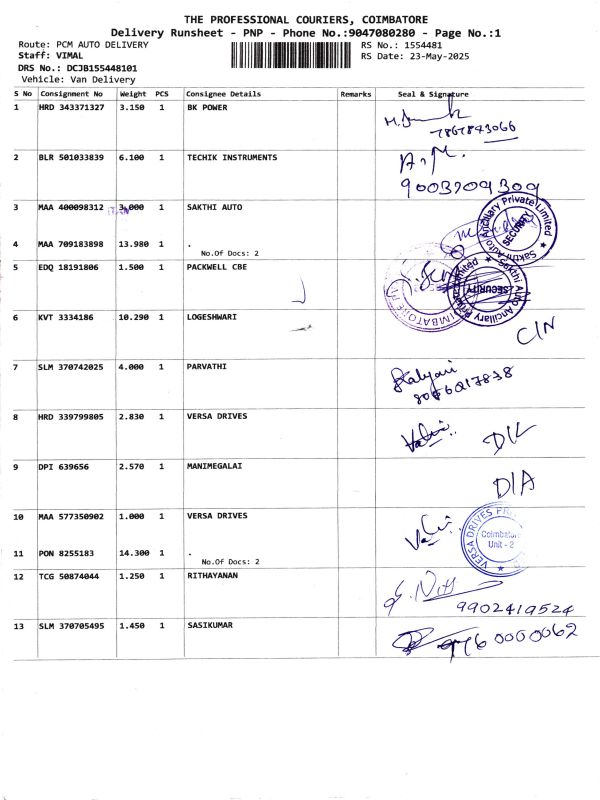 THE PROFESSIONAL COURIERS, COIMBATORE
Delivery Runsheet - PNP - Phone No.:9047080280 - Page No.:1
Route: PCM AUTO DELIVERY RS No.: 1554481
Staff: VIMAL RS Date: 23-May-2025
DRS No.: DCJB155448101
Vehicle: Van Delivery
S No Consignment No Weight PCS Consignee Details Remarks Seal & Signature
1 HRD 343371327 3.150 1 BK POWER
7867843066
2 BLR 501033839 6.100 1 TECHIK INSTRUMENTS
9003909309
3 MAA 400098312 3.000 1 SAKTHI AUTO
Sakthi Auto Ancillary Private Limited
SECURITY
4 MAA 709183898 13.980 1 .
No.Of Docs: 2
5 EDQ 18191806 1.500 1 PACKWELL CBE
Sakthi Auto Ancillary Private Limited
SECURITY
6 KVT 3334186 10.290 1 LOGESHWARI
C/N
7 SLM 370742025 4.000 1 PARVATHI
Kalyani
8 HRD 339799805 2.830 1 VERSA DRIVES
D/L
9 DPI 639656 2.570 1 MANIMEGALAI
D/A
10 MAA 577350902 1.000 1 VERSA DRIVES
VERSA DRIVES
Coimbatore
Unit - 2
11 PON 8255183 14.300 1 .
No.Of Docs: 2
12 TCG 50874044 1.250 1 RITHAYANAN
9902419524
13 SLM 370705495 1.450 1 SASIKUMAR